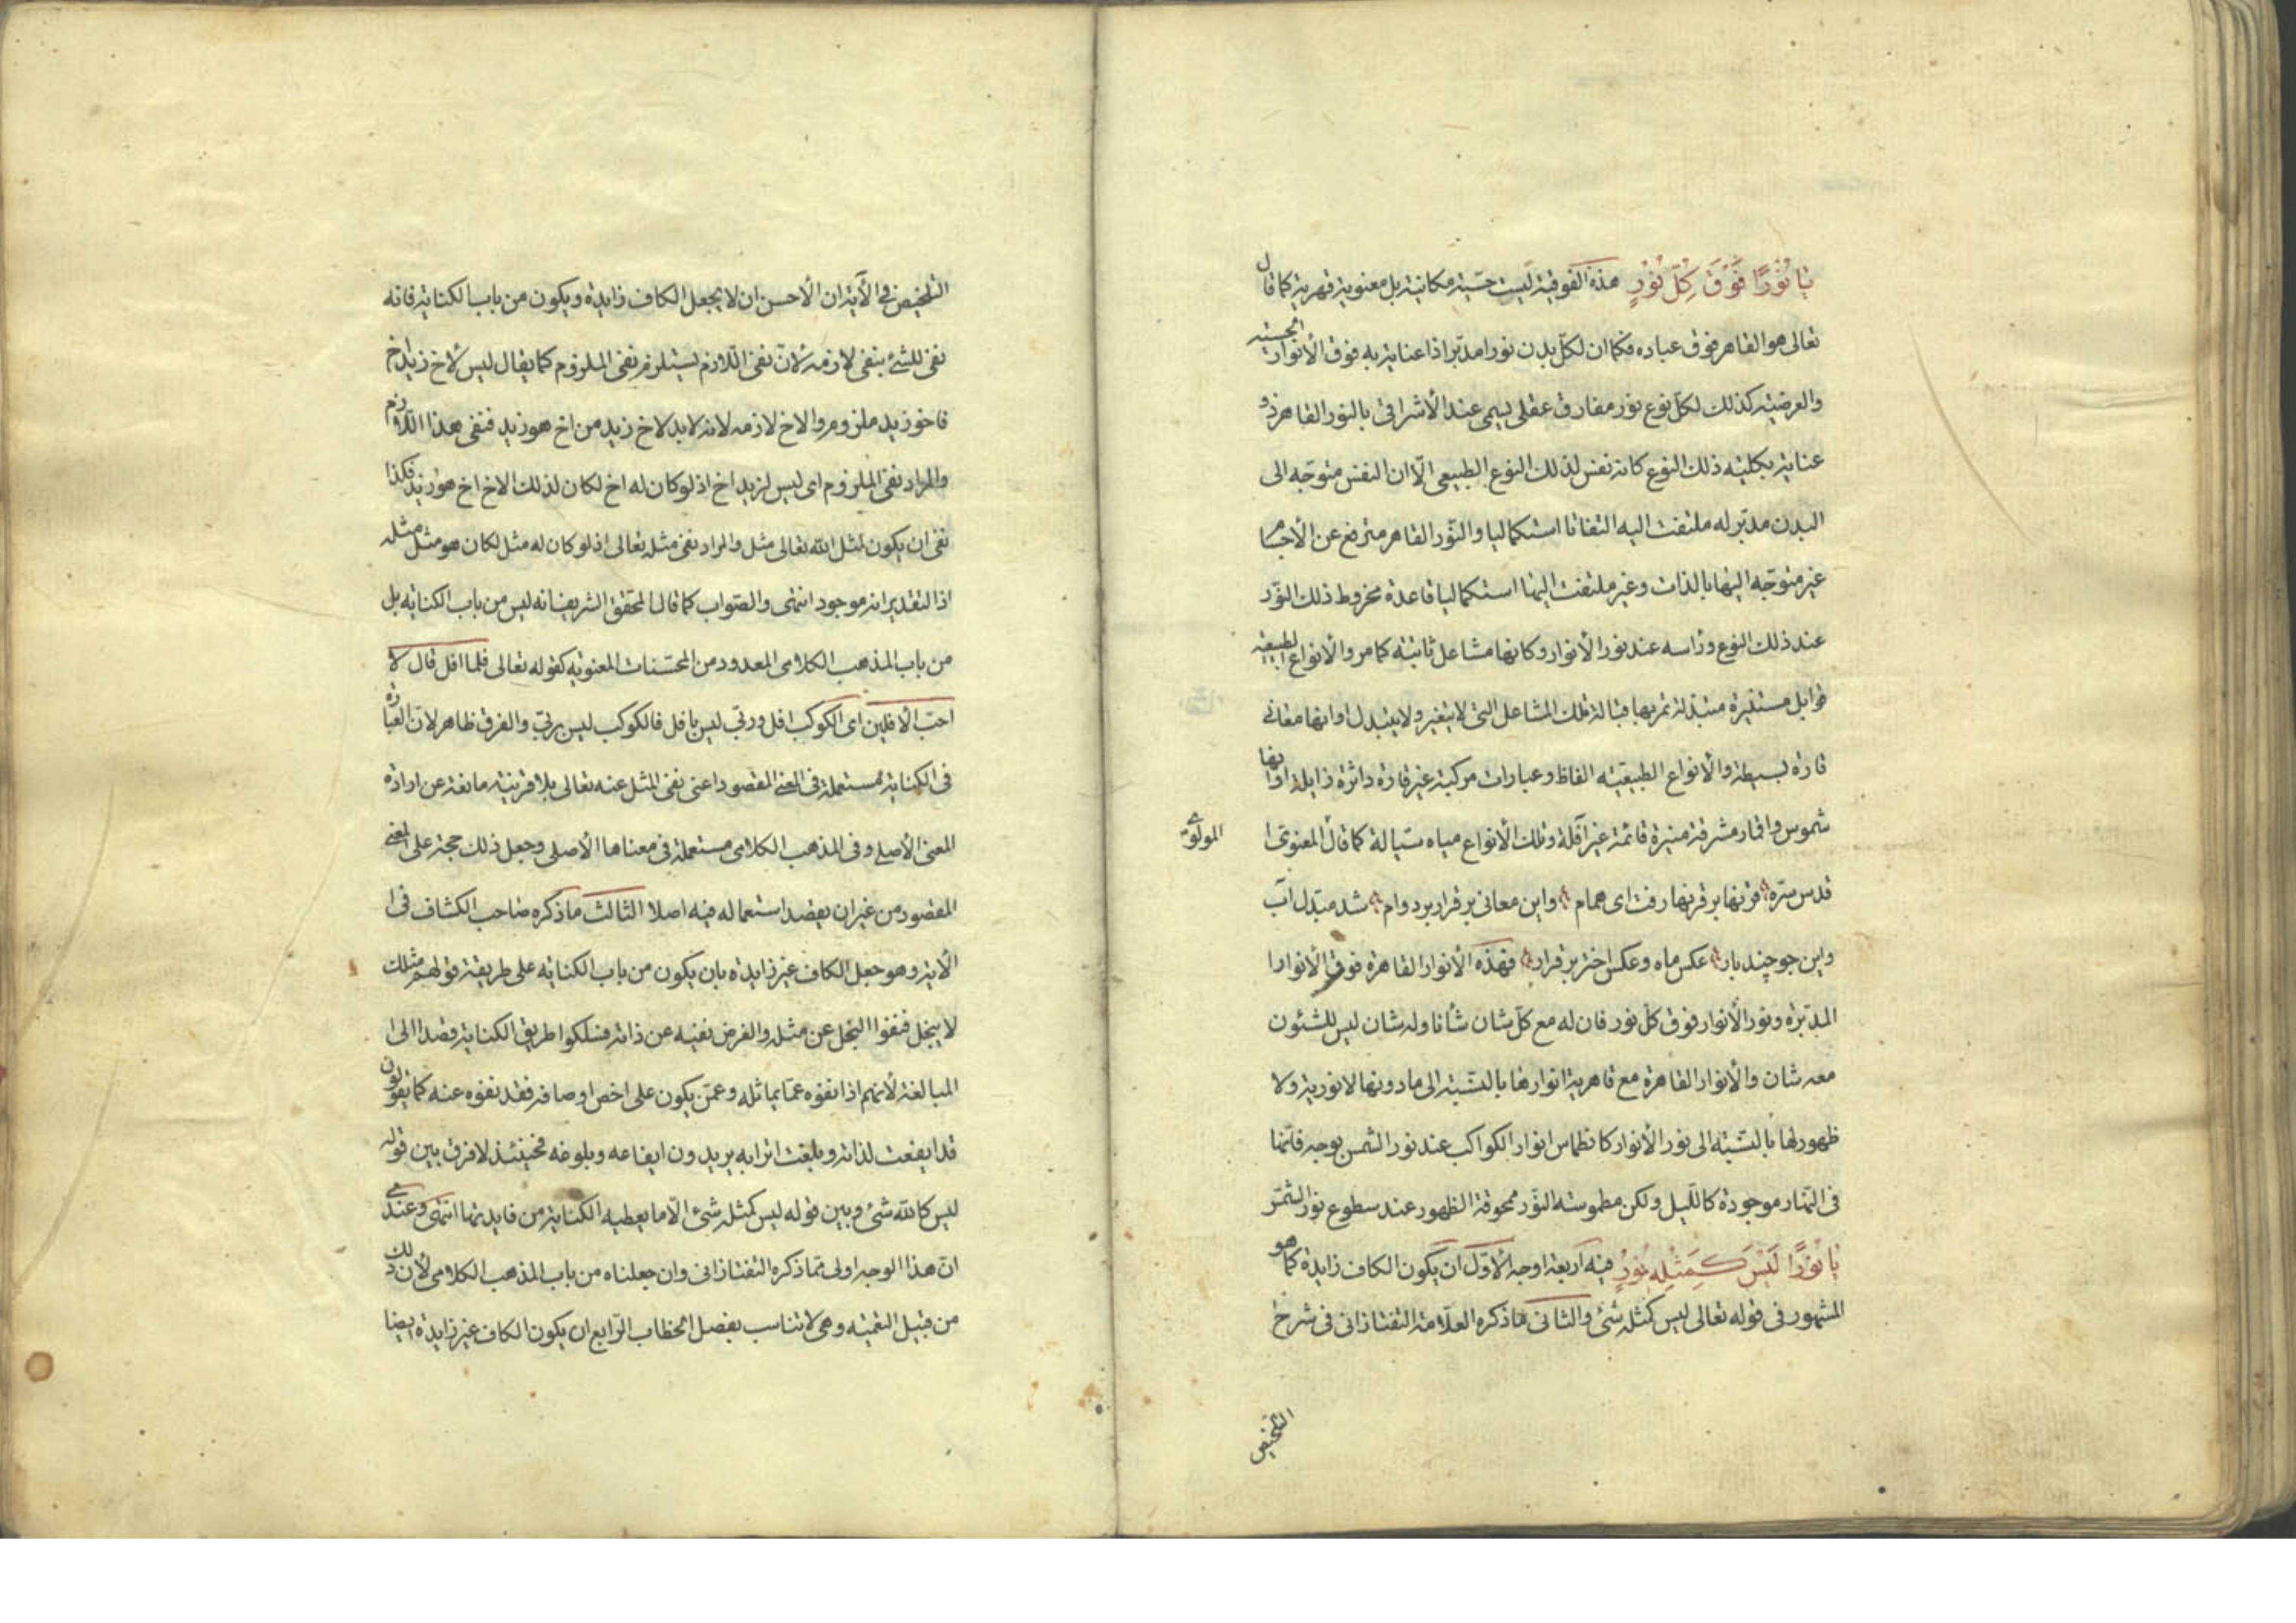 يَا نُورًا فَوْقَ كُلِّ نُورٍ هذه الفوقية ليست حسّية مكانية بل معنوية قهرية كما قال
تعالى هو القاهر فوق عباده فكما ان لكلّ بدن نورا مدبّرا ذا عناية به فوق الأنوار الحسيّه
والعرضيّه كذلك لكلّ نوع نور مفارق عقلى يسمى عند الأشراقى بالنور القاهر ذو
عناية بكليّه ذلك النوع كانه نفس لذلك النوع الطبيعى الّا ان النفس متوجّه الى
البدن مدبّر له ملتفت اليه التفاتا استكماليا والنّور القاهر مترفع عن الأجسام
غير متوجّه اليها بالذات وغير ملتفت اليها استكماليا قاعدة مخروط ذلك النّور
عند ذلك النوع ورأسه عند نور الأنوار وكانها مشاعل ثابتة كما مر والأنواع الطبيعيّه
قوابل مستنيرة متبدّلة تمر بها قبالة تلك المشاعل التى لا يتغير ولا يتبدل او انها معانى
قارة بسيطة والأنواع الطبيعيّه الفاظ وعبارات مركبة غير قارة داثرة زايلة او انها
شموس واقمار مشرقة منيرة قائمة غير آفلة وتلك الأنواع مياه سيّالة كما قال المعنوى ا
المولوى
قدس سرّه قرنها بر قرنها رفت اى همام واين معانى بر قرار بر دوام شد مبدّل آب
واين جو چند بار عكس ماه وعكس اختر بر قرار فهذه الأنوار القاهرة فوق الأنوار ا
المدبّرة ونور الأنوار فوق كلّ نور فان له مع كلّ شان شأنا وله شان ليس للشئون
معه شان والأنوار القاهرة مع قاهرية انوارها بالنسّبة الى ما دونها لا نورية ولا
ظهور لها بالنسّبه الى نور الأنوار كانطماس انوار الكواكب عند نور الشمس بوجه فانّها
فى النّهار موجودة كاللّيل ولكن مطموسة النّور ممحوقة الظهور عند سطوع نور الشمس
يَا نُورًا لَيْسَ كَمِثْلِهِ نُورٌ فيه اربعة اوجه الأوّل ان يكون الكاف زايدة كما هو
المشهور فى قوله تعالى ليس كمثله شئ والثانى ما ذكره العلّامة التفتازانى فى شرح
التلخيص
التلخيص فى الآية ان الأحسن ان لا يجعل الكاف زايدة ويكون من باب الكناية فانه
نفى للشئ بنفى لازمه لأنّ نفى اللّازم يستلزم نفى الملزوم كما يقال ليس لأخ زيد اخ
فاخو زيد ملزوم والاخ لازمه لانه لابد لاخ زيد من اخ هو زيد فنفى هذا اللّازم
والمراد نفى الملزوم اى ليس لزيد اخ اذ لو كان له اخ لكان لذلك الاخ اخ هو زيد فكذا
نفى ان يكون لمثل الله تعالى مثل والمراد نفى مثله تعالى اذ لو كان له مثل لكان هو مثل مثله
اذ التقدير انه موجود انتهى والصّواب كما قال المحقق الشريف انه ليس من باب الكنايه بل
من باب المذهب الكلامى المعدود من المحسّنات المعنويه كقوله تعالى فلما افل قال لا
احبّ الآفلين اى الكوكب افل وربّى ليس بافل فالكوكب ليس بربّى والفرق ظاهر لانّ العبارة
فى الكناية مستعملة فى المعنى المقصود اعنى نفى المثل عنه تعالى بلا قرينة مانعة عن ارادة
المعنى الأصلى وفى المذهب الكلامى مستعملة فى معناها الأصلى وجعل ذلك حجة على المعنى
المقصود من غير ان يقصد استعماله فيه اصلا الثالث ما ذكره صاحب الكشاف فى ا
الآية وهو جعل الكاف غير زايدة بان يكون من باب الكنايه على طريقة قولهم مثلك
لا يبخل فنفوا البخل عن مثله والغرض نفيه عن ذاته فسلكوا طريق الكناية قصدا الى ا
المبالغة لأنهم اذا نفوه عمّا يماثله وعمّن يكون على اخص اوصافه فقد نفوه عنه كما يقولون
قد ايفعت لذاته وبلغت اترابه يريدون ايفاعه وبلوغه فحينئذ لا فرق بين قوله
ليس كالله شئ وبين قوله ليس كمثله شئ الّا ما يعطيه الكناية من فايدتها انتهى وعندى
انّ هذا الوجه اولى ممّا ذكره التفتازانى وان جعلناه من باب المذهب الكلامى لأنّ ذلك
من قبيل التعميه وهى لا تناسب بفصل الخطاب الرّابع ان يكون الكاف غير زايدة ايضا